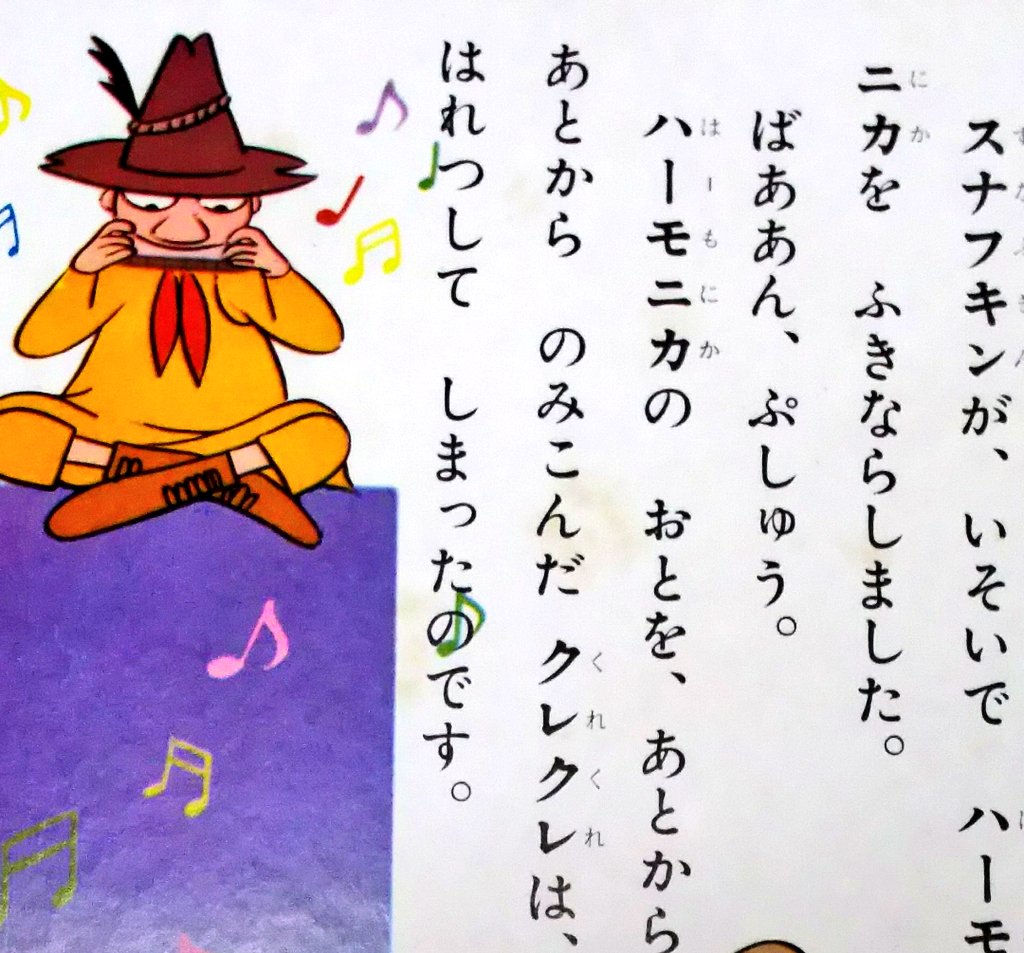 スナフキンが、いそいで ハーモ
ニカを ふきならしました。
ばああん、ぷしゅう。
ハーモニカの おとを、あとから
あとから のみこんだ クレクレは、
はれつして しまったのです。